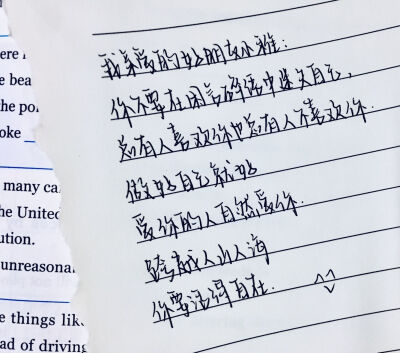 我亲爱的好朋友小雅:
你不要在闲言碎语中迷失自己,
总有人喜欢你也总有人不喜欢你.
做好自己就好
爱你的人自然爱你.
跨越人山人海
你要活得自在.
ere
e bea
the po
oke
many ca
he United
ution.
unreasona
e things lik
ead of driving